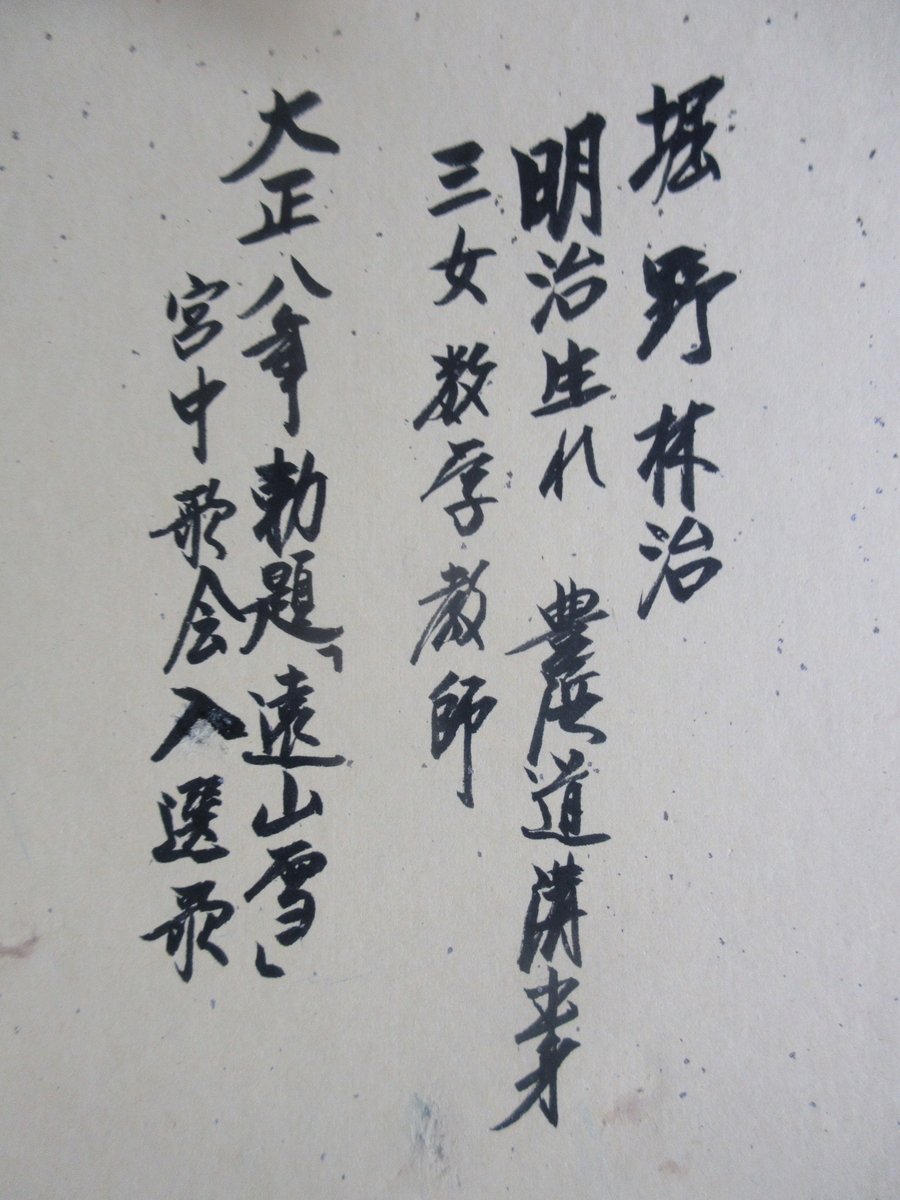 堀野林治
明治生れ 豊浜道溝出身
三女 数学教師
大正八年 勅題「遠山雪」
宮中歌会入選歌